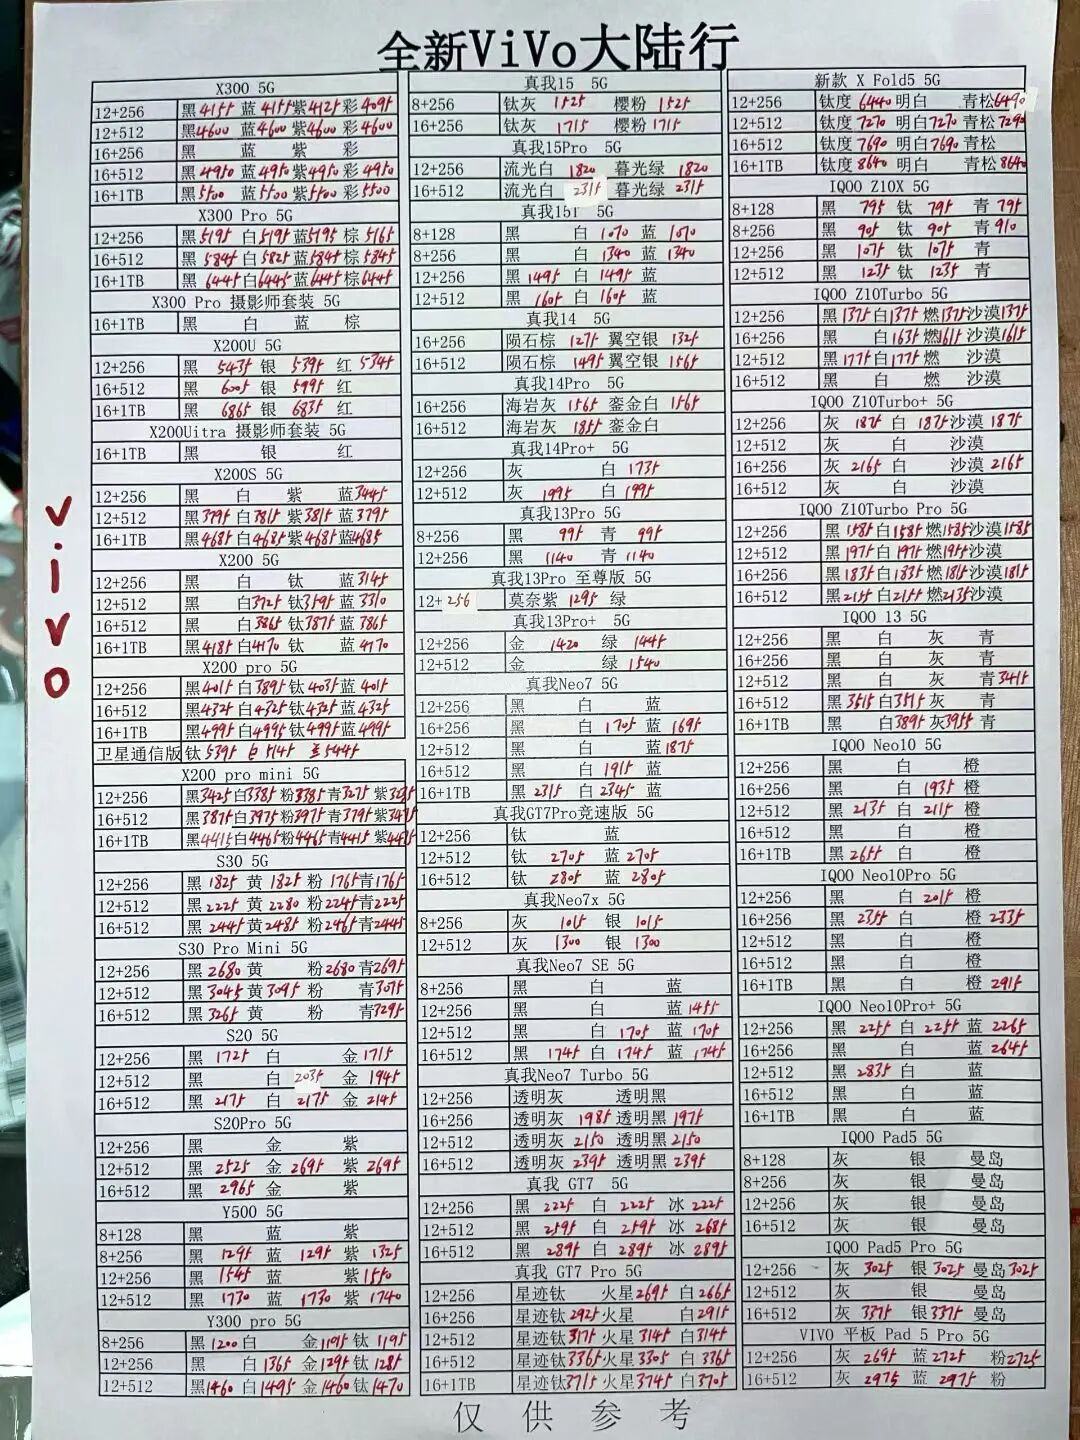 全新ViVo大陆行
vivo
X300 5G
12+256 黑4155 蓝4155 紫4125 彩4095
12+512 黑4600 蓝4600 紫4600 彩4600
16+256 黑 蓝 紫 彩
16+512 黑4950 蓝4950 紫4950 彩4950
16+1TB 黑5500 蓝5500 紫5500 彩5500
X300 Pro 5G
12+256 黑5195 白5195 蓝5195 棕5165
16+512 黑5845 白5825 蓝5845 棕5845
16+1TB 黑6445 白6445 蓝6445 棕6445
X300 Pro 摄影师套装 5G
16+1TB 黑 白 蓝 棕
X200U 5G
12+256 黑 5435 银 5395 红 5345
16+512 黑 6005 银 5995 红
16+1TB 黑 6865 银 6835 红
X200Uitra 摄影师套装 5G
16+1TB 黑 银 红
X200S 5G
12+256 黑 白 紫 蓝3445
12+512 黑3795 白3815 紫3815 蓝3795
16+1TB 黑4685 白4685 紫4685 蓝4685
X200 5G
12+256 黑 白 钛 蓝3145
12+512 黑 白3725 钛3595 蓝3310
16+512 黑 白3865 钛3875 蓝3865
16+1TB 黑4185 白4170 钛 蓝4170
X200 pro 5G
12+256 黑4015 白3895 钛4035 蓝4015
16+512 黑4325 白4325 钛4325 蓝4325
16+1TB 黑4995 白4995 钛4995 蓝4995
卫星通信版 钛5395 白5145 蓝5445
X200 pro mini 5G
12+256 黑3425 白3385 粉3385 青3275 紫
16+512 黑3875 白3975 粉3975 青3795 紫
16+1TB 黑4415 白4465 粉4465 青4415 紫
S30 5G
12+256 黑1825 黄1825 粉1765 青1765
12+512 黑2225 黄2280 粉2245 青2225
16+512 黑2445 黄2485 粉2465 青2445
S30 Pro Mini 5G
12+256 黑2680 黄 粉2680 青2695
12+512 黑3045 黄3095 粉 青3075
16+512 黑3265 黄 粉 青3295
S20 5G
12+256 黑 1725 白 金1715
12+512 黑 白 2035 金 1945
16+512 黑 2175 白 2175 金 2145
S20Pro 5G
12+256 黑 金 紫
12+512 黑 2525 金 2695 紫 2695
16+512 黑 2965 金 紫
Y500 5G
8+128 黑 蓝 紫
8+256 黑 1295 蓝 1295 紫 1325
12+256 黑 1545 蓝 紫1550
12+512 黑 1730 蓝 1730 紫 1740
Y300 pro 5G
8+256 黑1200 白 金1195 钛 1195
12+256 黑 白1365 金1295 钛 1285
12+512 黑1460 白1495 金1460 钛1470
真我15 5G
8+256 钛灰 1525 樱粉 1525
16+256 钛灰 1715 樱粉 1715
真我15Pro 5G
12+256 流光白 1820 暮光绿 1820
16+512 流光白 2315 暮光绿 2315
真我15T 5G
8+128 黑 白 1070 蓝 1070
8+256 黑 白 1340 蓝 1340
12+256 黑1495 白1495 蓝
12+512 黑1605 白1605 蓝
真我14 5G
16+256 陨石棕 1275 翼空银 1325
16+512 陨石棕 1495 翼空银 1565
真我14Pro 5G
16+256 海岩灰 1565 銮金白 1565
16+512 海岩灰 1855 銮金白
真我14Pro+ 5G
12+256 灰 白 1735
12+512 灰 1995 白 1995
真我13Pro 5G
8+256 黑 995 青 995
12+256 黑 1140 青 1140
真我13Pro 至尊版 5G
12+256 莫奈紫 1295 绿
真我13Pro+ 5G
12+256 金 1420 绿 1445
12+512 金 绿 1540
真我Neo7 5G
12+256 黑 白 蓝
16+256 黑 白 1705 蓝 1695
12+512 黑 白 蓝1875
16+512 黑 白 1915 蓝
16+1TB 黑 2315 白 2345 蓝
真我GT7Pro竞速版 5G
12+256 钛 蓝
12+512 钛 2705 蓝 2705
16+512 钛 2805 蓝 2805
真我Neo7x 5G
8+256 灰 1015 银 1015
12+512 灰 1300 银 1300
真我Neo7 SE 5G
8+256 黑 白 蓝
12+256 黑 白 蓝1455
12+512 黑 白 1705 蓝 1705
16+512 黑 1745 白 1745 蓝 1745
真我Neo7 Turbo 5G
12+256 透明灰 透明黑
16+256 透明灰 1985 透明黑 1975
12+512 透明灰 2150 透明黑2150
16+512 透明灰 2395 透明黑 2395
真我 GT7 5G
12+256 黑 2225 白 2225 冰 2225
12+512 黑 2595 白 2595 冰 2685
16+512 黑 2895 白 2895 冰 2895
真我 GT7 Pro 5G
12+256 星迹钛 火星2695 白2665
16+256 星迹钛2925 火星 白2915
12+512 星迹钛3175 火星3145 白3145
16+512 星迹钛3365 火星3305 白 3365
16+1TB 星迹钛3715 火星3745 白3705
新款 X Fold5 5G
12+256 钛度 6440 明白 青松6490
12+512 钛度 7270 明白7270 青松7290
16+512 钛度 7690 明白7690 青松
16+1TB 钛度 8640 明白 青松8640
IQOO Z10X 5G
8+128 黑 795 钛 795 青 795
8+256 黑 905 钛 905 青910
12+256 黑 1075 钛 1075 青
12+512 黑 1235 钛 1235 青
IQOO Z10Turbo 5G
12+256 黑1375 白1375 燃1375 沙漠1375
16+256 黑 白1635 燃1615 沙漠1615
12+512 黑1775 白1775 燃 沙漠
16+512 黑 白 燃 沙漠
IQOO Z10Turbo+ 5G
12+256 灰 1875 白 1875 沙漠 1875
12+512 灰 白 沙漠
16+256 灰 2165 白 沙漠 2165
16+512 灰 白 沙漠
IQOO Z10Turbo Pro 5G
12+256 黑1585 白1585 燃1585 沙漠1585
12+512 黑1975 白1975 燃1955 沙漠
16+256 黑1835 白1835 燃1815 沙漠1815
16+512 黑2155 白2155 燃2135 沙漠
IQOO 13 5G
12+256 黑 白 灰 青
16+256 黑 白 灰 青
12+512 黑 白 灰 青3415
16+512 黑3515 白3515 灰 青
16+1TB 黑 白3895 灰3955 青
IQOO Neo10 5G
12+256 黑 白 橙
16+256 黑 白 1935 橙
12+512 黑 2135 白 2115 橙
16+512 黑 白 橙
16+1TB 黑 2655 白 橙
IQOO Neo10Pro 5G
12+256 黑 白 2015 橙
16+256 黑 2355 白 橙 2335
12+512 黑 白 橙
16+512 黑 白 橙
16+1TB 黑 白 橙 2915
IQOO Neo10Pro+ 5G
12+256 黑 2255 白 2255 蓝 2265
16+256 黑 白 蓝 2645
12+512 黑 2835 白 蓝
16+512 黑 白 蓝
16+1TB 黑 白 蓝
IQOO Pad5 5G
8+128 灰 银 曼岛
8+256 灰 银 曼岛
12+256 灰 银 曼岛
16+512 灰 银 曼岛
IQOO Pad5 Pro 5G
12+256 灰 3025 银 3025 曼岛3025
12+512 灰 银 曼岛
16+512 灰 3375 银3375 曼岛
VIVO 平板 Pad 5 Pro 5G
12+256 灰 2695 蓝 2725 粉2725
16+512 灰 2975 蓝 2975 粉
仅供参考